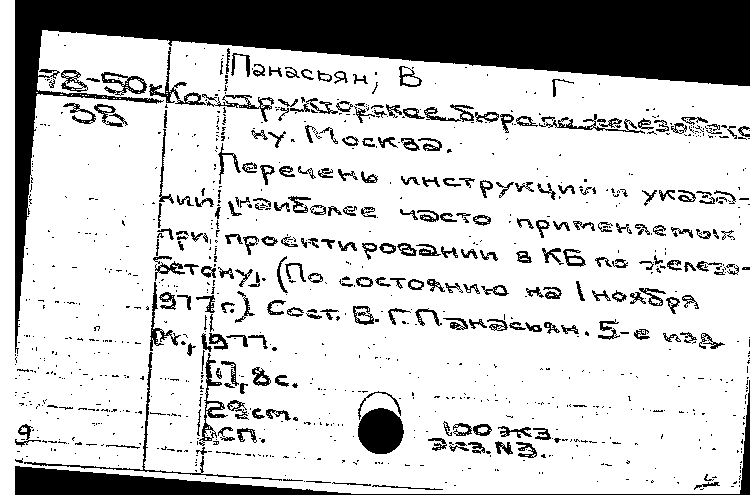 Панасьян, В Г
78-50к Конструкторское бюро по железобето
38
ну. Москва.
Перечень инструкций и указа-
ний, [наиболее часто применяемых
при проектировании в КБ по железо-
бетону]. (По состоянию на 1 ноября
1977 г.). Сост. В. Г. Панасьян. 5-е изд.
М., 1977.
[1], 8 с.
29 см.
ДСП.
100 экз.
9
Экз. N3.